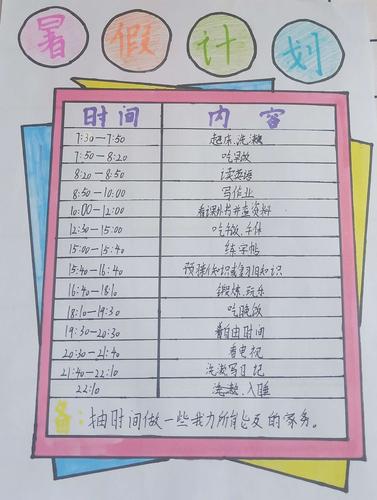 暑假计划
时间 内容
7:30—7:50 起床、洗漱
7:50—8:20 吃早饭
8:20—8:50 读英语
8:50—10:00 写作业
10:00—12:00 看课外书并查资料
12:30—15:00 吃午饭、午休
15:00—15:40 练字帖
15:40—16:40 预习新知识或复习旧知识
16:40—18:10 锻炼、玩乐
18:10—19:30 吃晚饭
19:30—20:30 自由时间
20:30—21:40 看电视
21:40—22:10 洗漱写日记
22:10 洗漱、入睡
备:抽时间做一些我力所能及的家务。